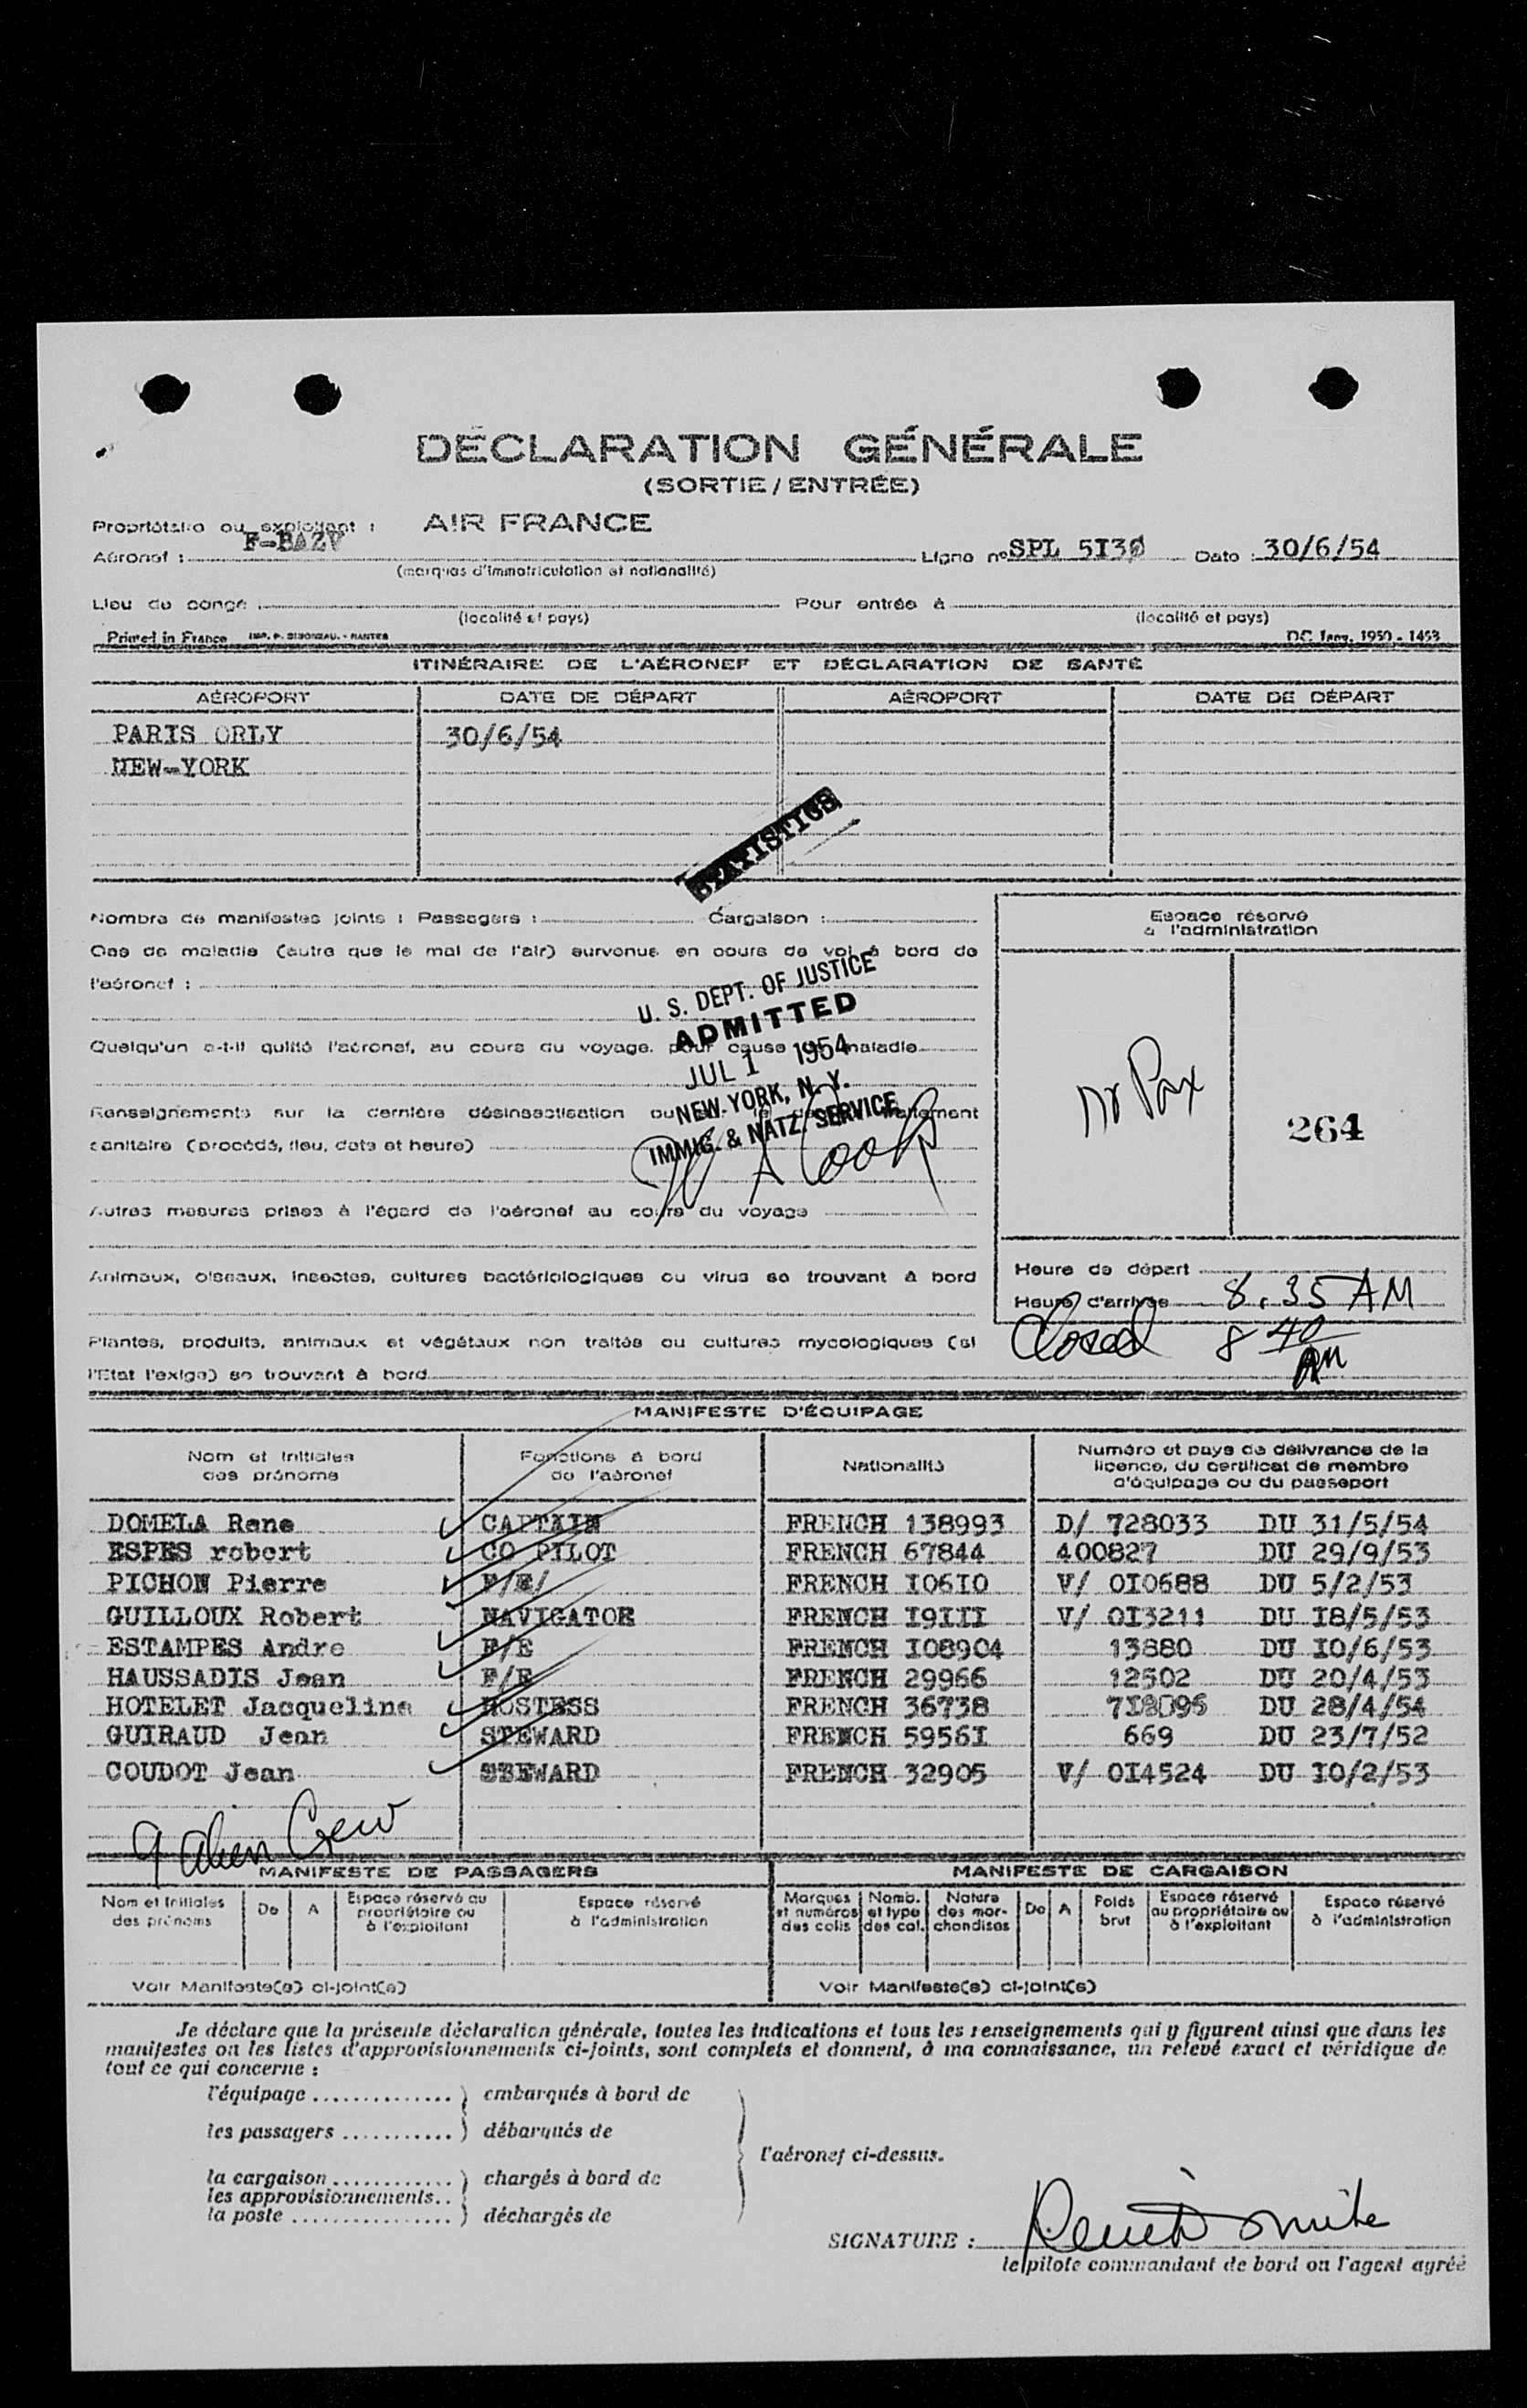 DÉCLARATION GÉNÉRALE
(SORTIE / ENTRÉE)
Propriétaire ou exploitant : AIR FRANCE
Aéronef : F-BAZV Ligne n° SPL 5I3Ø Date : 30/6/54
(marques d'immatriculation et nationalité)
Lieu de congé Pour entrée à
(localité et pays) (localité et pays)
Printed in France IMP. P. SIMONEAU. - NANTES DC. Janv. 1950 - 1453
ITINÉRAIRE DE L'AÉRONEF ET DÉCLARATION DE SANTÉ
AÉROPORT DATE DE DÉPART AÉROPORT DATE DE DÉPART
PARIS ORLY 30/6/54
NEW-YORK
STATISTICS
Nombre de manifestes joints : Passagers : Cargaison :
Cas de maladie (autre que le mal de l'air) survenus en cours de vol à bord de
l'aéronef :
Quelqu'un a-t-il quitté l'aéronef, au cours du voyage, pour cause maladie
Renseignements sur la dernière désinsectisation ou traitement
sanitaire (procédé, lieu, date et heure)
U. S. DEPT. OF JUSTICE
ADMITTED
JUL 1 1954
NEW YORK, N. Y.
IMMIG. & NATZ. SERVICE
Autres mesures prises à l'égard de l'aéronef au cours du voyage
Animaux, oiseaux, insectes, cultures bactériologiques ou virus se trouvant à bord
Plantes, produits, animaux et végétaux non traités ou cultures mycologiques (si
l'Etat l'exige) se trouvant à bord
Espace réservé
à l'administration
264
Heure de départ
Heure d'arrivée 8.35 AM
Closed 8 40 AM
MANIFESTE D'ÉQUIPAGE
Nom et initiales des prénoms Fonctions à bord de l'aéronef Nationalité Numéro et pays de délivrance de la licence, du certificat de membre d'équipage ou du passeport
DOMELA Rene CAPTAIN FRENCH 138993 D/ 728033 DU 31/5/54
ESPES robert CO PILOT FRENCH 67844 400827 DU 29/9/53
PICHON Pierre F/E/ FRENCH I06I0 V/ 0I0688 DU 5/2/53
GUILLOUX Robert NAVIGATOR FRENCH I9III V/ 0I3211 DU I8/5/53
ESTAMPES Andre F/E FRENCH I08904 13880 DU I0/6/53
HAUSSADIS Jean F/E FRENCH 29966 12502 DU 20/4/53
HOTELET Jacqueline HOSTESS FRENCH 36738 DU 28/4/54
GUIRAUD Jean STEWARD FRENCH 5956I 669 DU 23/7/52
COUDOT Jean STEWARD FRENCH 32905 V/ 0I4524 DU I0/2/53
9 alien Crew
MANIFESTE DE PASSAGERS MANIFESTE DE CARGAISON
Nom et initiales des prénoms De A Espace réservé au propriétaire ou à l'exploitant Espace réservé à l'administration Marques et numéros des colis Nomb. et type des col. Nature des mar- chandises De A Poids brut Espace réservé au propriétaire ou à l'exploitant Espace réservé à l'administration
Voir Manifeste(s) ci-joint(s) Voir Manifeste(s) ci-joint(s)
Je déclare que la présente déclaration générale, toutes les indications et tous les renseignements qui y figurent ainsi que dans les
manifestes ou les listes d'approvisionnements ci-joints, sont complets et donnent, à ma connaissance, un relevé exact et véridique de
tout ce qui concerne :
l'équipage .............. ) embarqués à bord de
les passagers ........... ) débarqués de
l'aéronef ci-dessus.
la cargaison ............ ) chargés à bord de
les approvisionnements..
la poste ................ ) déchargés de
SIGNATURE :
le pilote commandant de bord ou l'agent agréé